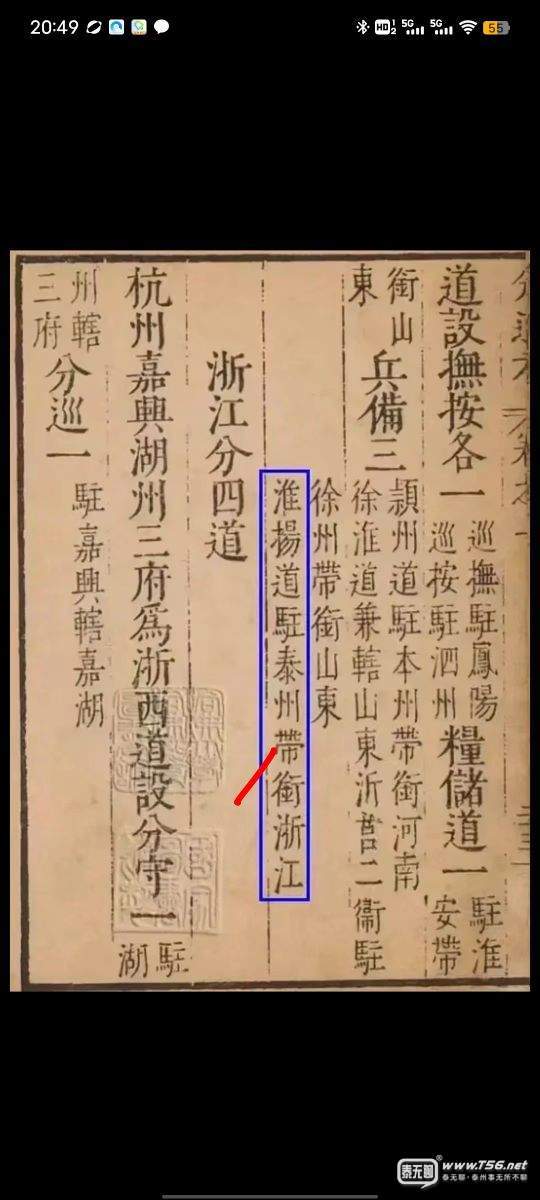 20:49
HD 1 2 5G 5G 55
道設撫按各一
巡撫駐鳳陽
巡按駐泗州
糧儲道一
駐淮
安帶
銜山
東
兵備三
頴州道駐本州帶銜河南
徐淮道兼轄山東沂莒二衞駐
徐州帶銜山東
淮揚道駐泰州帶銜浙江
浙江分四道
杭州嘉興湖州三府爲浙西道設分守一
駐
湖
州轄
三府
分巡一
駐嘉興轄嘉湖
泰无聊®
www.T56.net
泰无聊·泰州事无所不聊